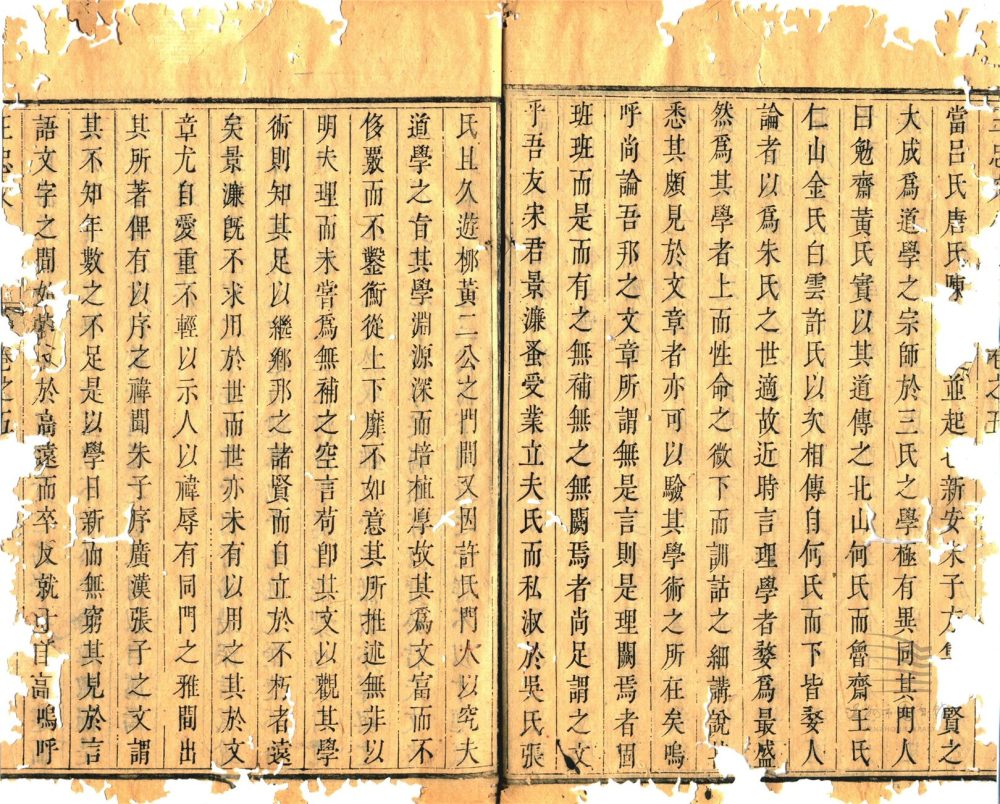 當呂氏唐氏陳 並起 新安朱子方 賢之
大成爲道學之宗師於三氏之學極有異同其門人
曰勉齋黃氏實以其道傳之北山何氏而魯齋王氏
仁山金氏白雲許氏以次相傳自何氏而下皆婺人
論者以爲朱氏之世適故近時言理學者婺爲最盛
然爲其學者上而性命之微下而訓詁之細講說
悉其頗見於文章者亦可以驗其學術之所在矣嗚
呼尚論吾邦之文章所謂無是言則是理闕焉者固
班班而是而有之無補無之無闕焉者尚足謂之文
乎吾友宋君景濂蚤受業立夫氏而私淑於吳氏張
氏且久遊栁黃二公之門間又因許氏門人以究夫
道學之旨其學淵源深而培植厚故其爲文富而不
侈覈而不鑿衡從上下靡不如意其所推述無非以
明夫理而未嘗爲無補之空言苟即其文以觀其學
術則知其足以繼鄉邦之諸賢而自立於不朽者遠
矣景濂旣不求用於世而世亦未有以用之其於文
章尤自愛重不輕以示人以禕辱有同門之雅間出
其所著俾有以序之禕聞朱子序廣漢張子之文謂
其不知年數之不足是以學日新而無窮其見於言
語文字之間始 於高遠而卒反就 嗚呼
王忠文 卷之五